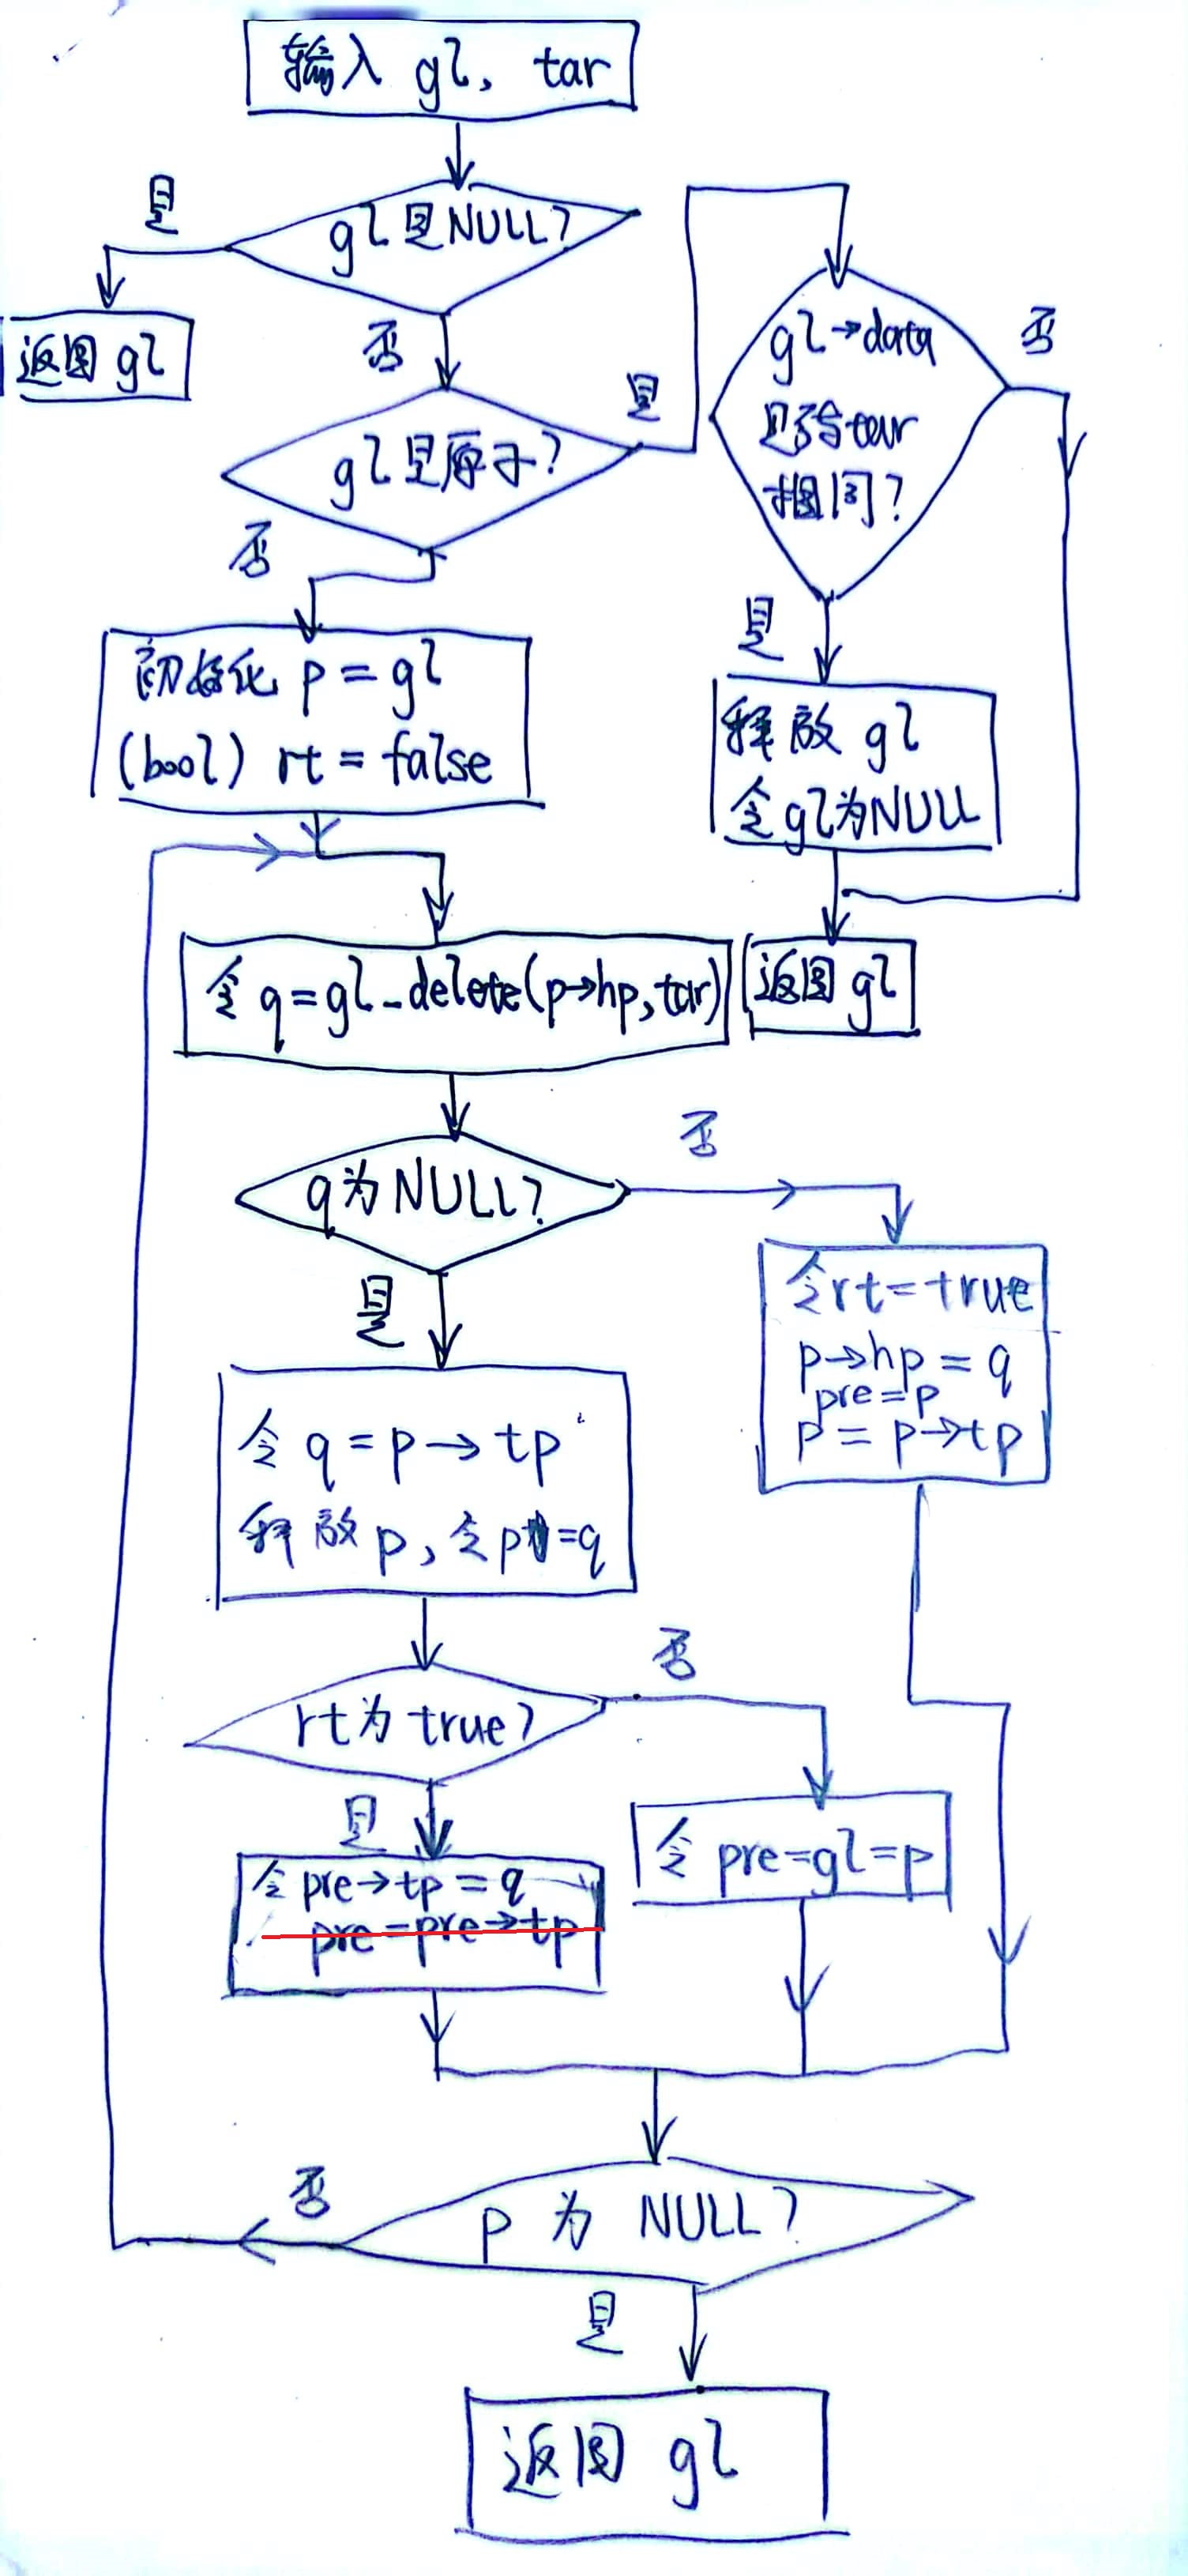 输入 gl, tar
gl是NULL?
是
返回 gl
否
gl是原子?
是
gl→data
是否与tar
相同?
否
是
释放 gl
令gl为NULL
返回 gl
否
初始化 p = gl
(bool) rt = false
令 q=gl_delete(p→hp,tar)
q为NULL?
否
令rt=true
p→hp = q
pre=p
p = p→tp
是
令 q = p→tp
释放p,令p=q
rt为true?
否
令 pre=gl=p
是
令pre→tp=q
pre=pre→tp
p 为 NULL?
否
是
返回 gl